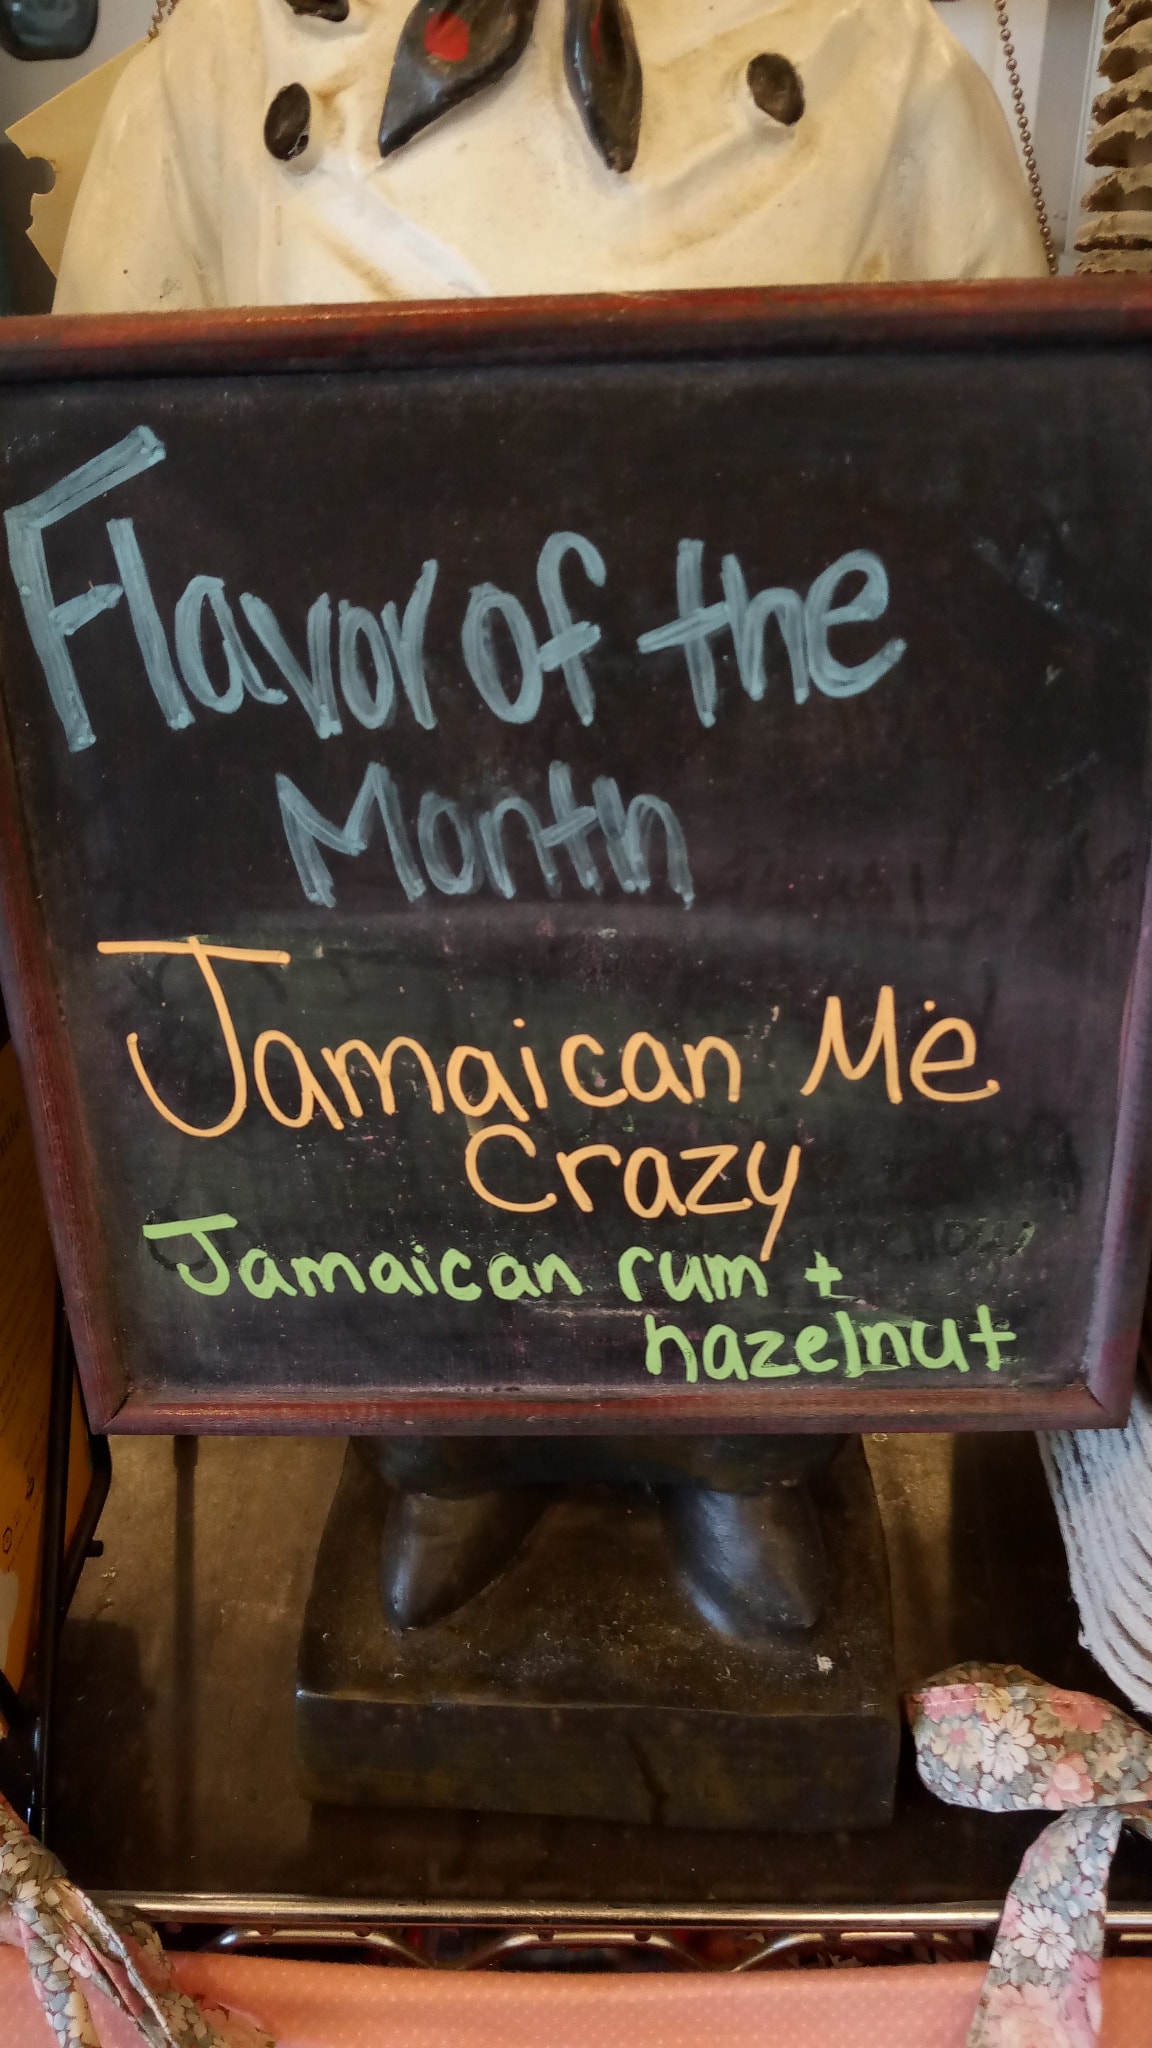 Flavor of the
Month
Jamaican Me
Crazy
Jamaican rum +
hazelnut